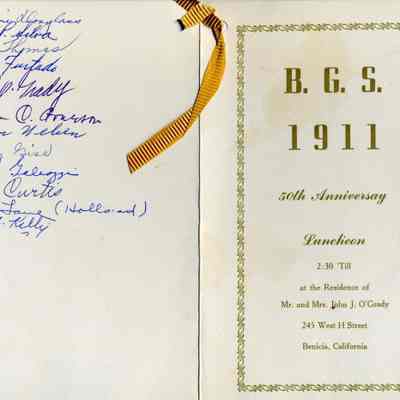 Douglass
P. Silva
Thomas
Furtado
O'Grady
O.
Nelson
Gise
Curtis
(Holland)
Kelly
B. G. S.
1911
50th Anniversay
Luncheon
2:30 'Till
at the Residence of
Mr. and Mrs. John J. O'Grady
245 West H Street
Benicia, California